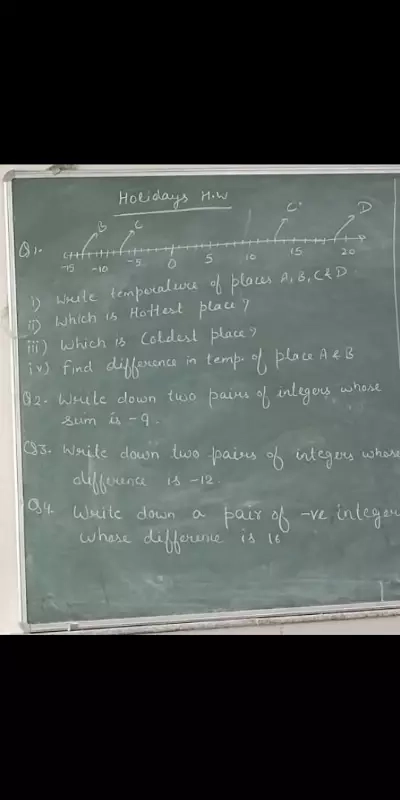 Holidays H.W
B C C' D
Q1. -15 -10 -5 0 5 10 15 20
i) Write temperature of places A, B, C & D
ii) Which is Hottest place?
iii) Which is Coldest place?
iv) Find difference in temp. of place A & B
Q2. Write down two pairs of integers whose
sum is -9.
Q3. Write down two pairs of integers whose
difference is -12.
Q4. Write down a pair of -ve integer
whose difference is 16